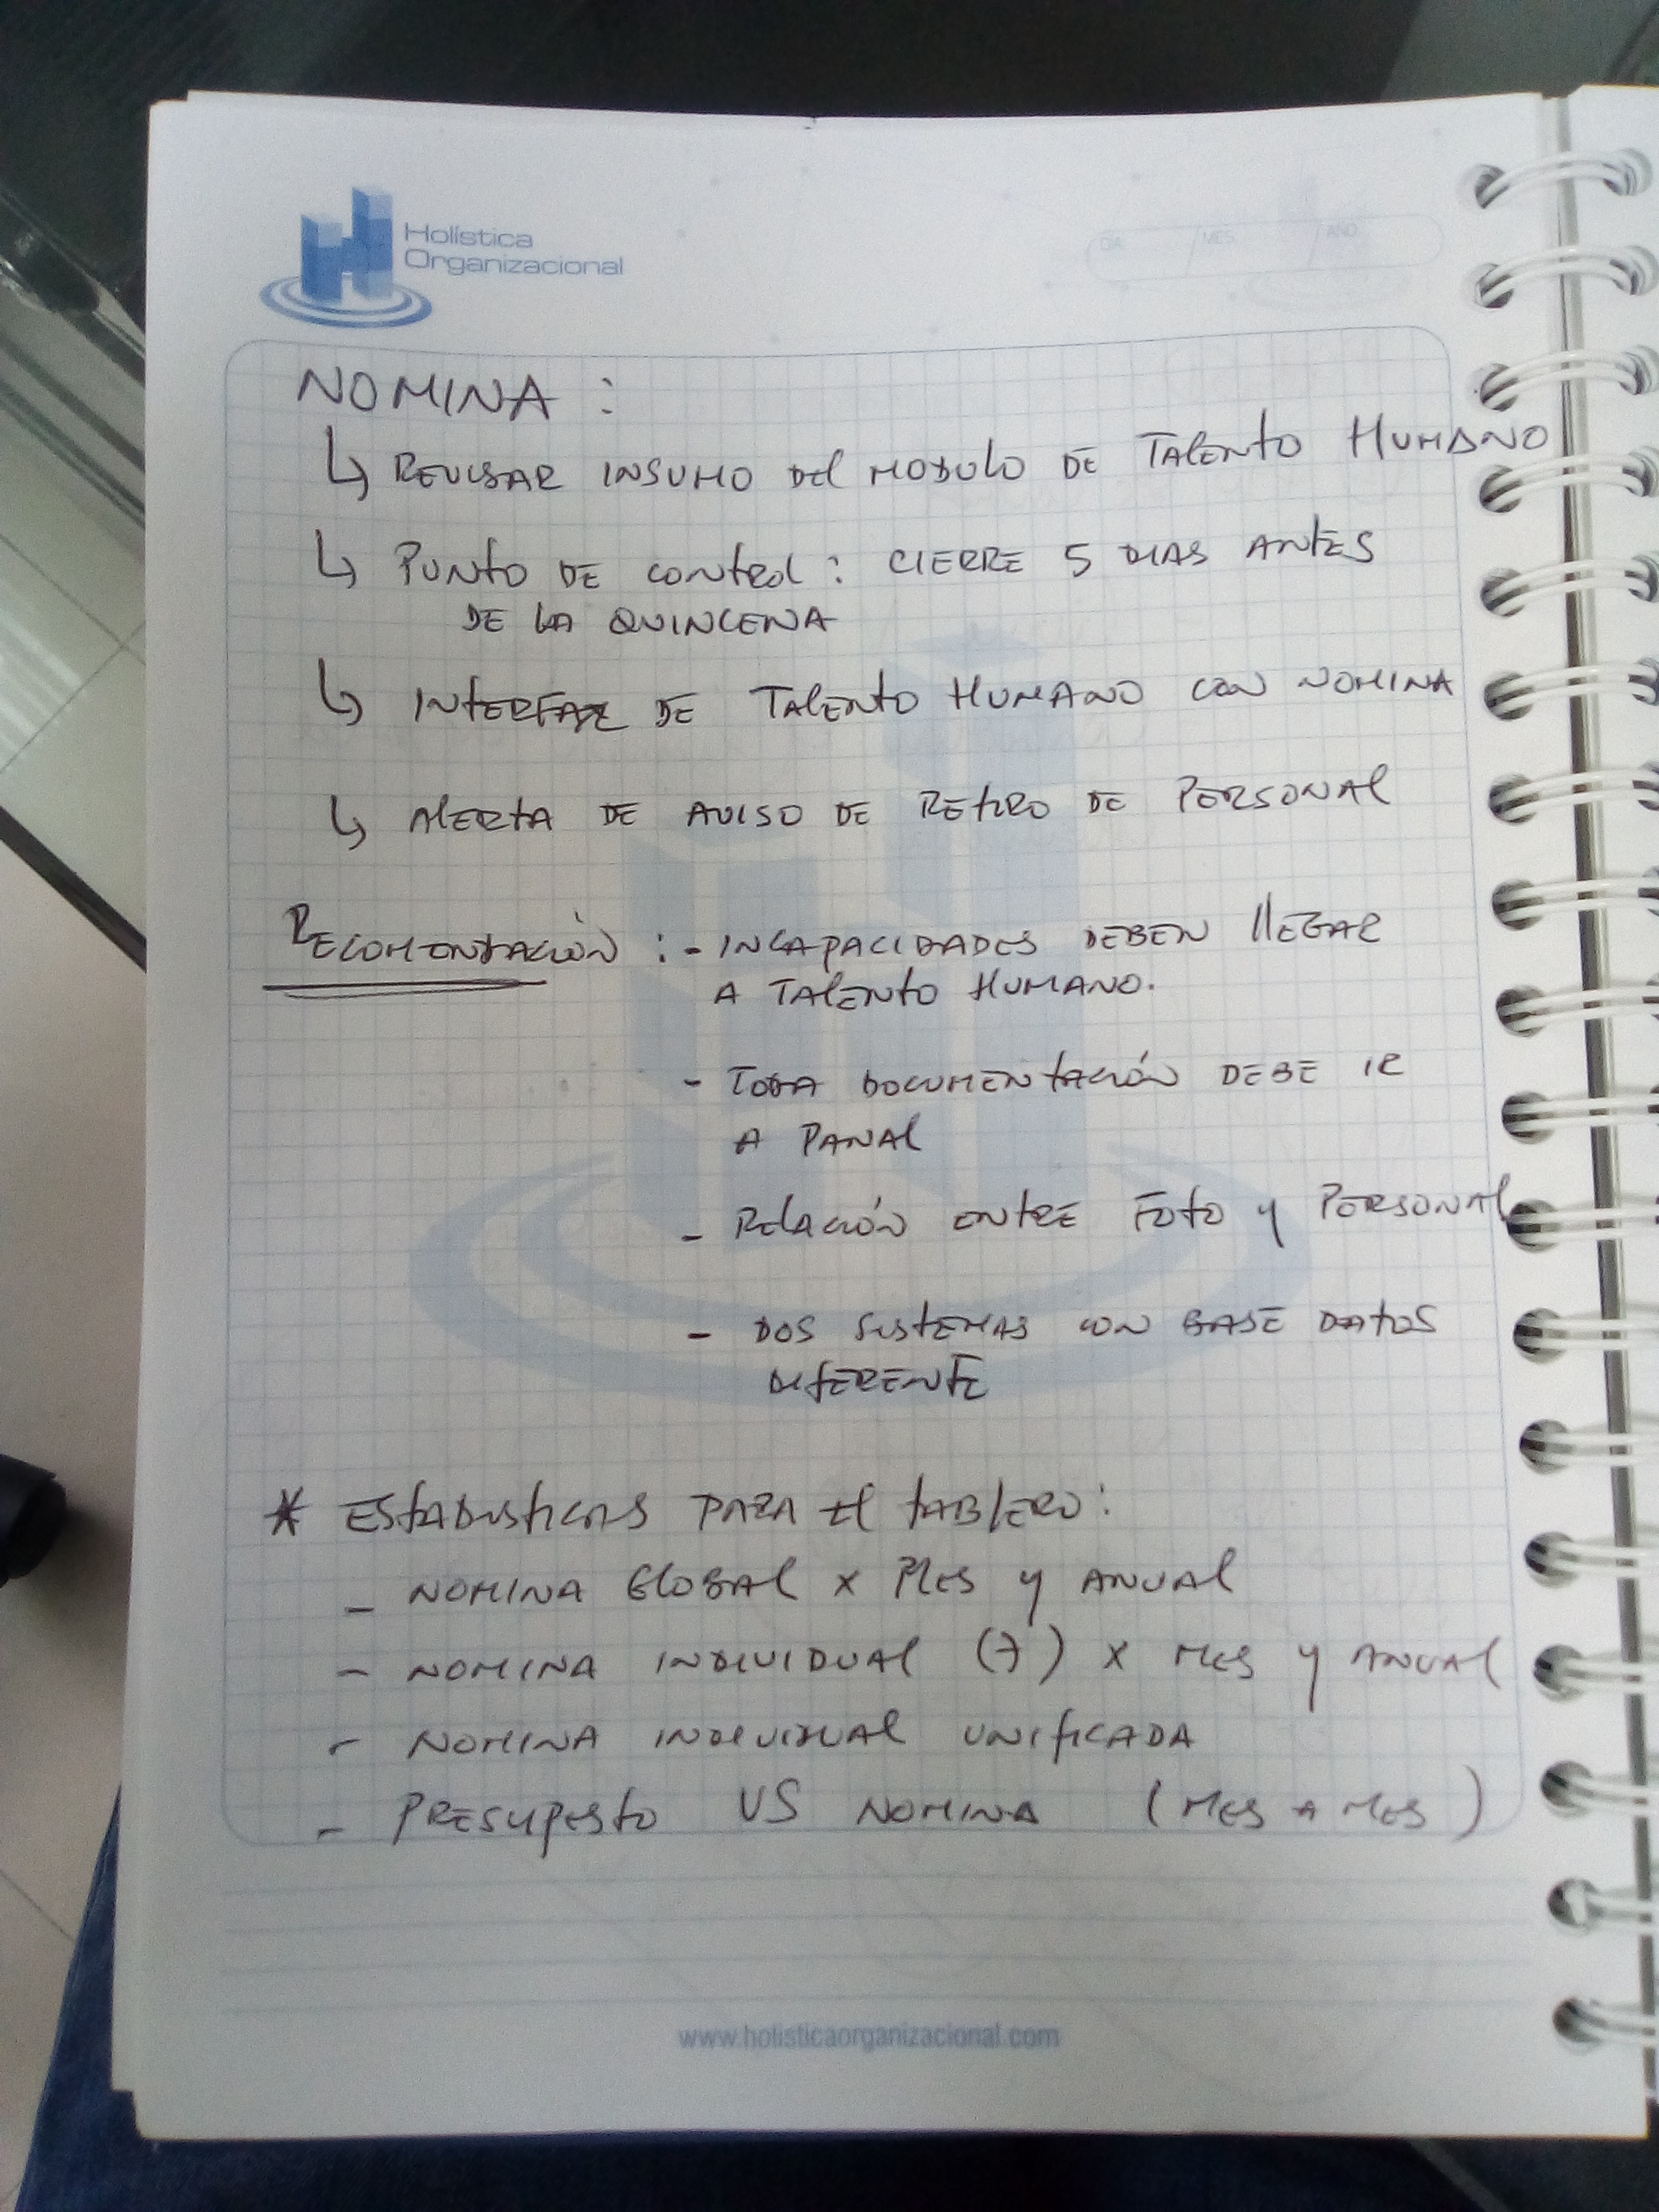 Holística
Organizacional
DIA / MES / AÑO
NOMINA :
↳ REVISAR INSUMO DEL MODULO DE TALENTO HUMANO
↳ PUNTO DE CONTROL : CIERRE 5 DIAS ANTES
DE LA QUINCENA
↳ INTERFAZ DE TALENTO HUMANO CON NOMINA
↳ ALERTA DE AVISO DE RETIRO DE PERSONAL
RECOMENDACIÓN : - INCAPACIDADES DEBEN LLEGAR
A TALENTO HUMANO.
- TODA DOCUMENTACIÓN DEBE IR
A PANAL
- RELACIÓN ENTRE FOTO Y PERSONAL
- DOS SISTEMAS CON BASE DATOS
DIFERENTE
* ESTADISTICAS PARA EL TABLERO:
- NOMINA GLOBAL X MES Y ANUAL
- NOMINA INDIVIDUAL (7) X MES Y ANUAL
- NOMINA INDIVIDUAL UNIFICADA
- PRESUPESTO VS NOMINA (MES A MES)
www.holisticaorganizacional.com